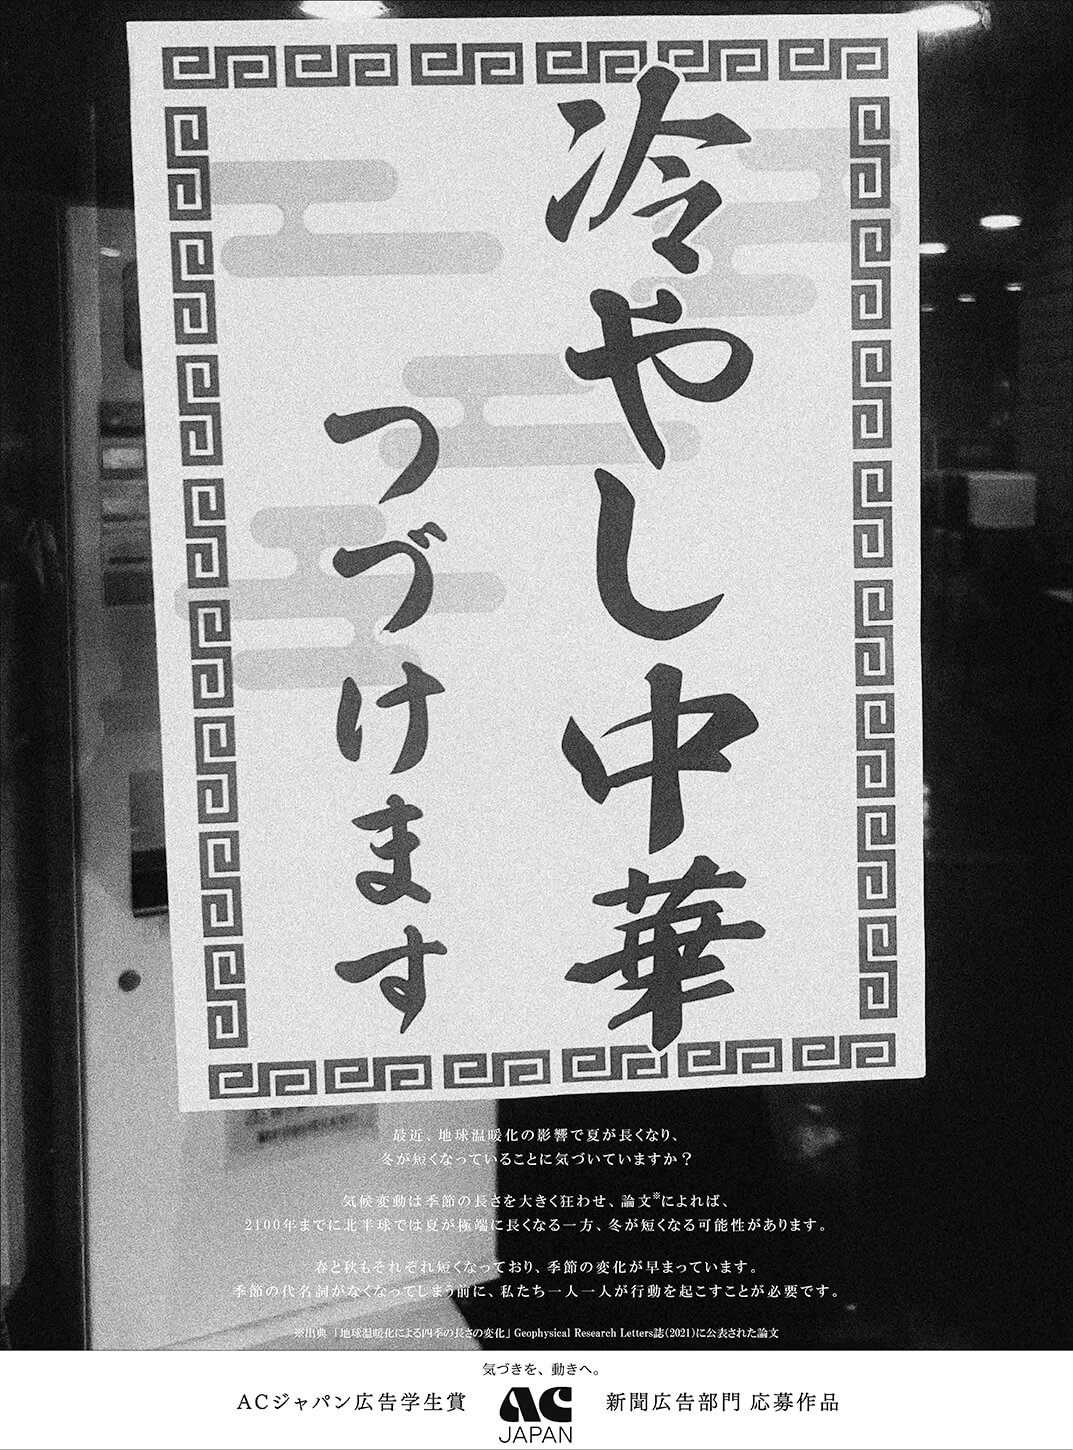 冷やし中華
つづけます
最近、地球温暖化の影響で夏が長くなり、
冬が短くなっていることに気づいていますか？
気候変動は季節の長さを大きく狂わせ、論文※によれば、
2100年までに北半球では夏が極端に長くなる一方、冬が短くなる可能性があります。
春と秋もそれぞれ短くなっており、季節の変化が早まっています。
季節の代名詞がなくなってしまう前に、私たち一人一人が行動を起こすことが必要です。
※出典 「地球温暖化による四季の長さの変化」 Geophysical Research Letters誌（2021）に公表された論文
気づきを、動きへ。
ACジャパン広告学生賞
AC
JAPAN
新聞広告部門 応募作品